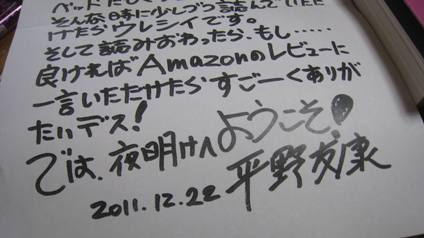 そんな時に少しづつ読んでいただ
けたらウレシイです。
そして読みおわったら、もし……
良ければAmazonのレビューに
一言いただけたらすごーくありが
たいデス!
では、夜明けへようこそ!
2011.12.22 平野友康